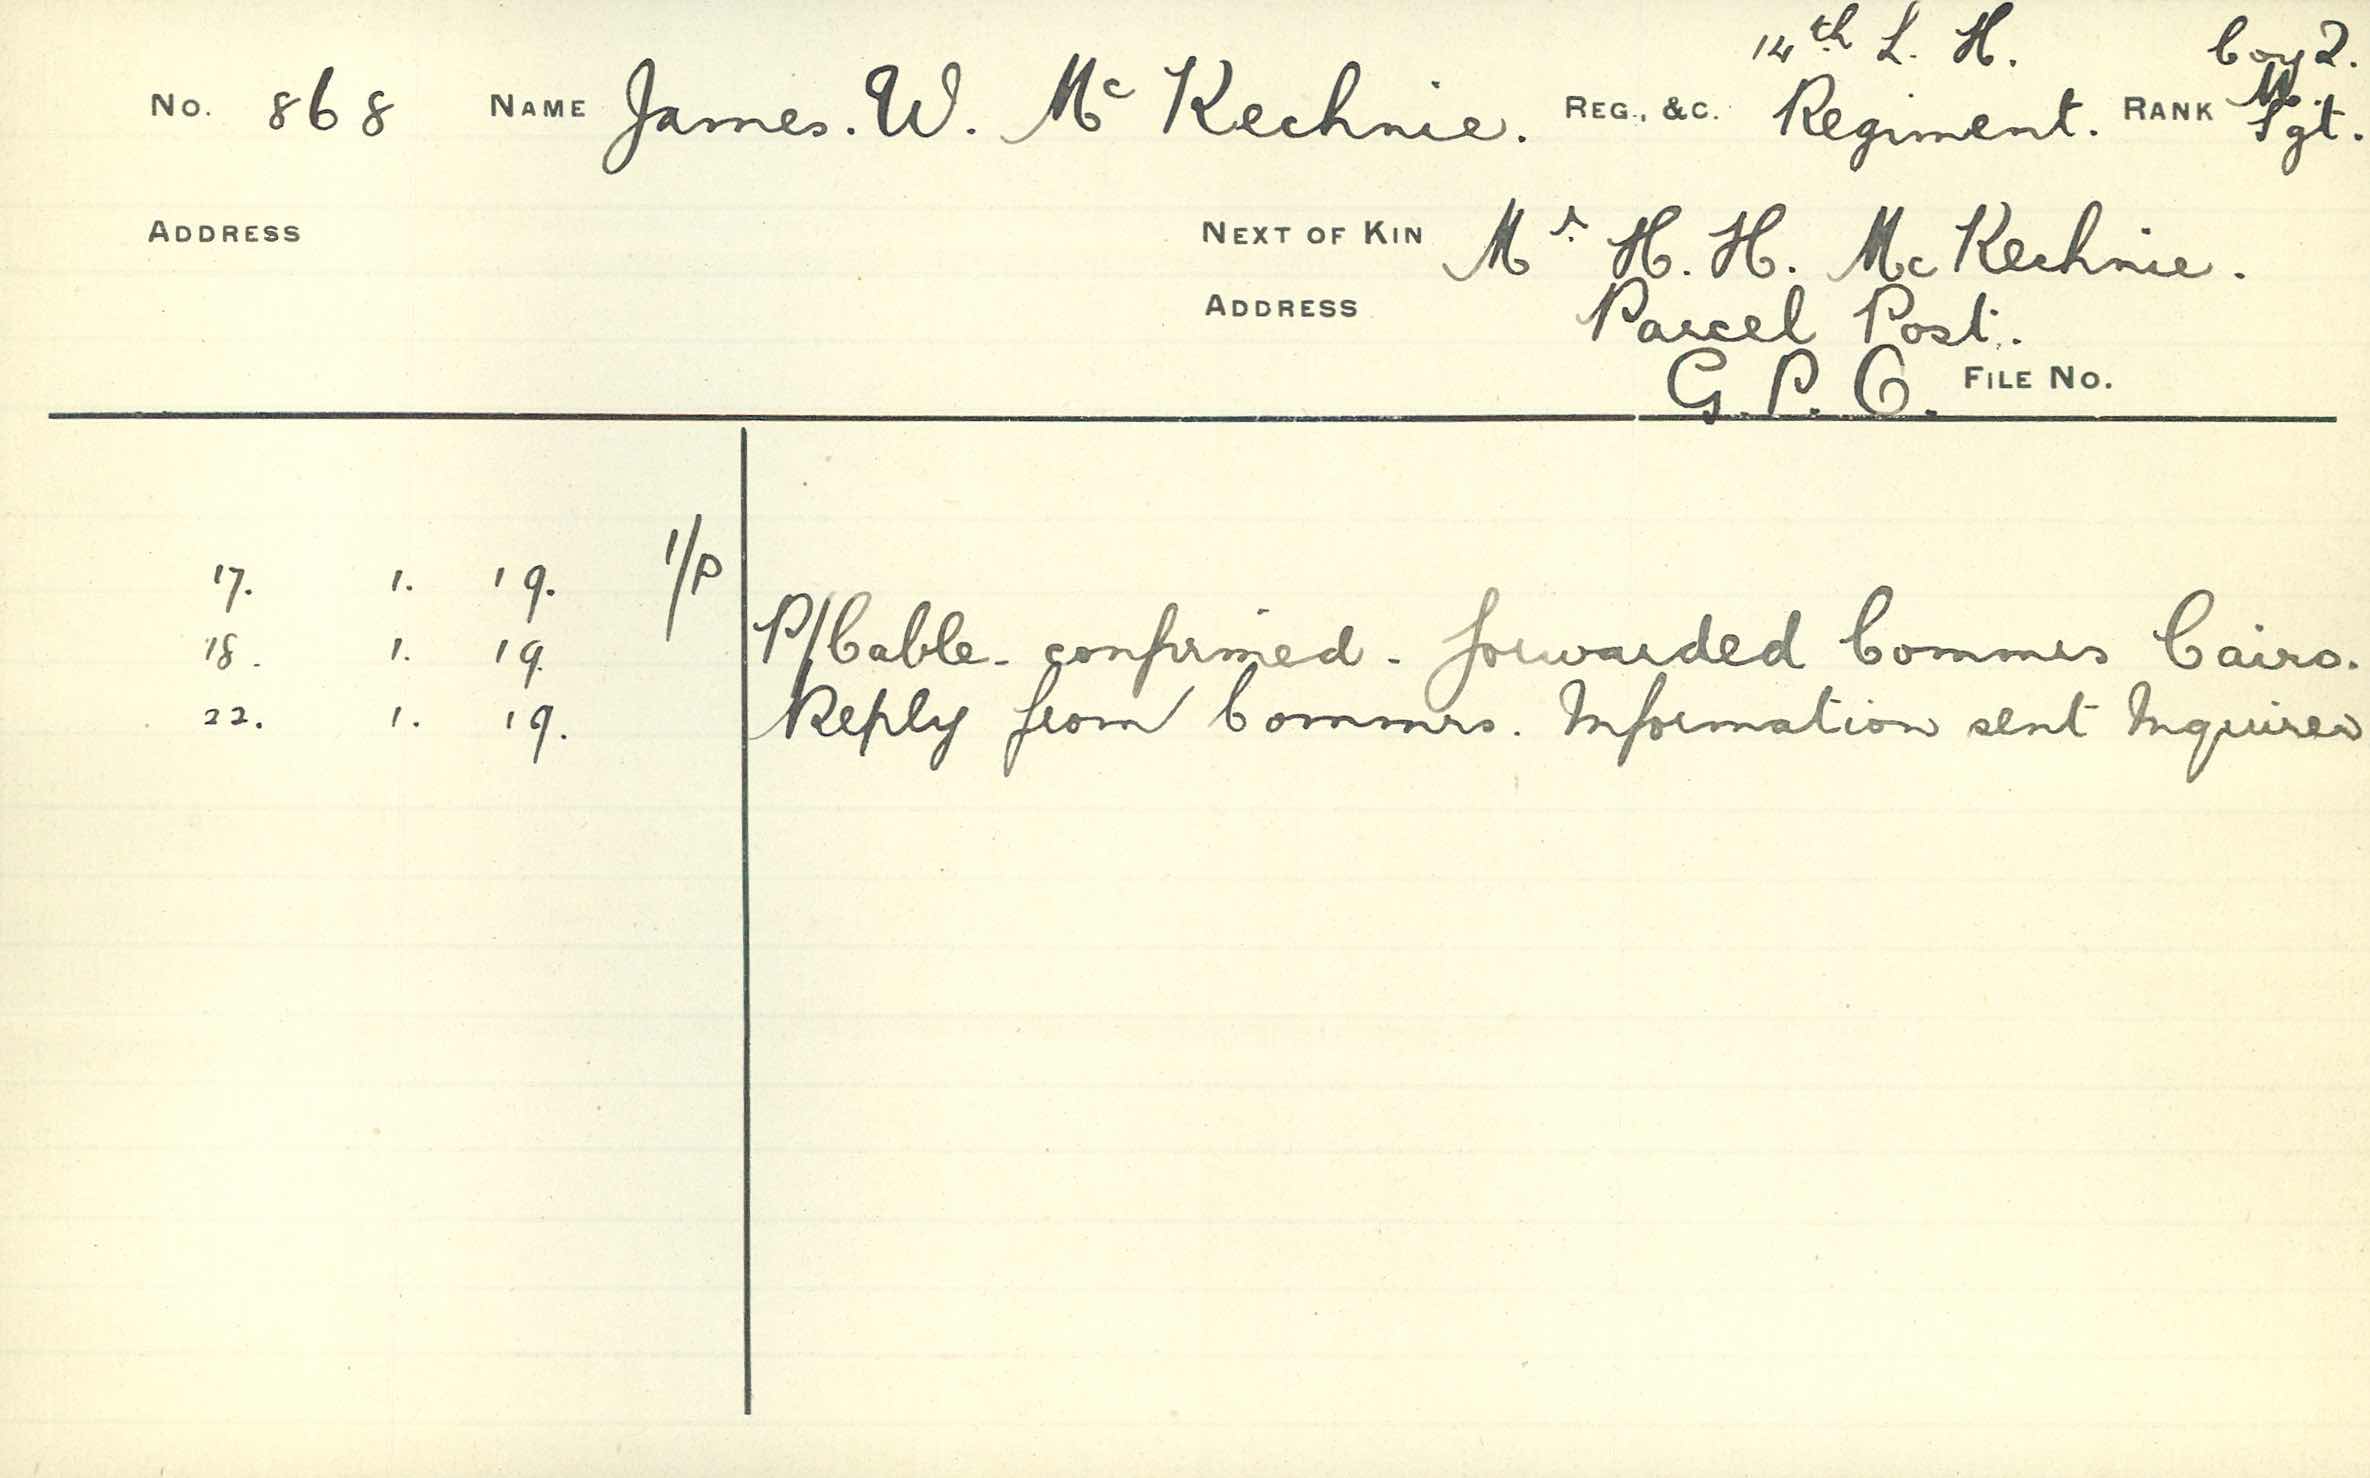 14th L. H. Coy 2.
No. 868 NAME James. W. Mc Kechnie. REG., &C. Regiment. RANK M. Sgt.
ADDRESS NEXT OF KIN Mr. H. H. McKechnie.
ADDRESS Parcel Post.
G. P. O. FILE No.
17. 1. 19. 1/P
18. 1. 19. P/Cable - confirmed - forwarded Commrs Cairo.
22. 1. 19. Reply from Commrs. Information sent Inquirer